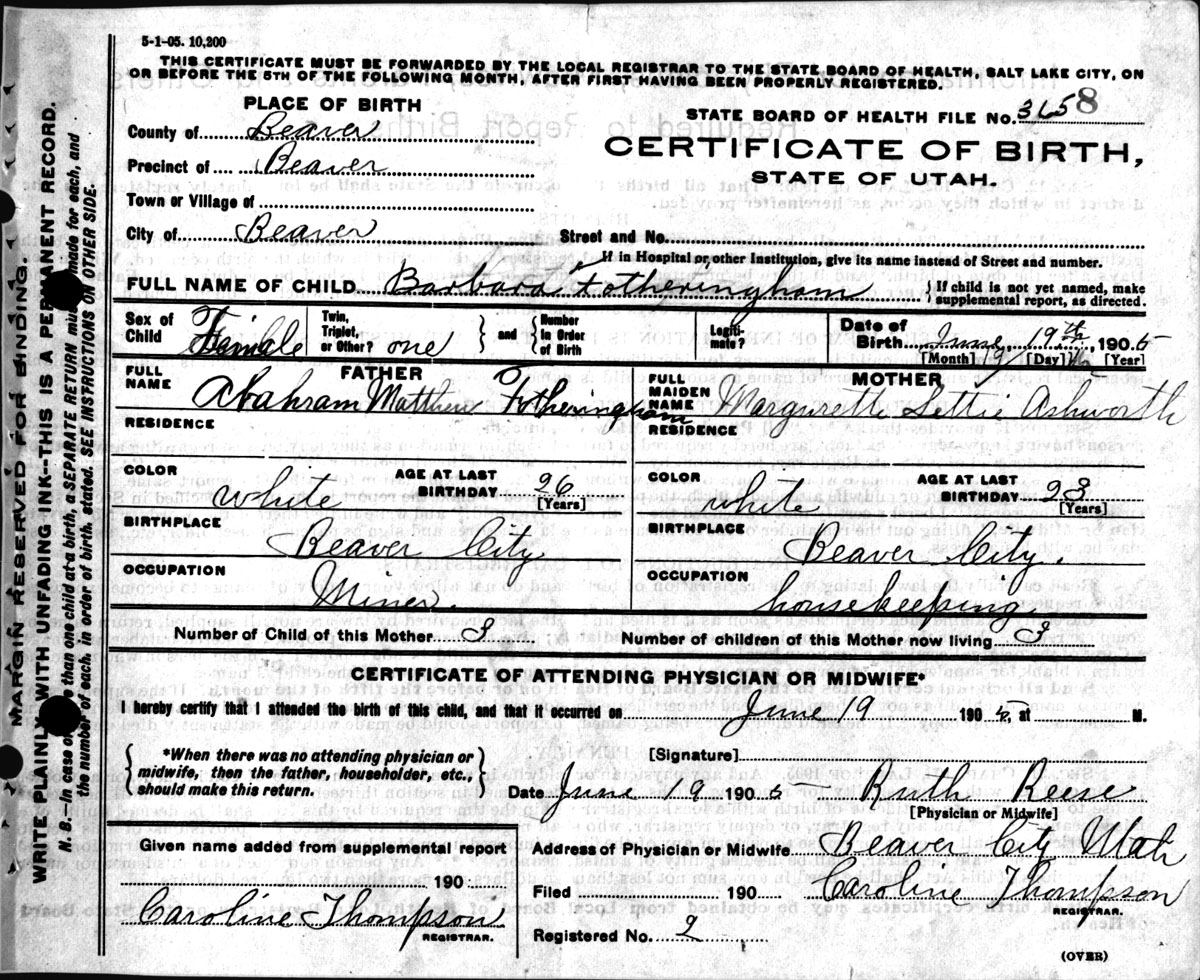 5-1-05. 10,200
THIS CERTIFICATE MUST BE FORWARDED BY THE LOCAL REGISTRAR TO THE STATE BOARD OF HEALTH, SALT LAKE CITY, ON
OR BEFORE THE 5TH OF THE FOLLOWING MONTH, AFTER FIRST HAVING BEEN PROPERLY REGISTERED.
PLACE OF BIRTH
STATE BOARD OF HEALTH FILE No. 3658
County of Beaver
CERTIFICATE OF BIRTH,
Precinct of Beaver
STATE OF UTAH.
Town or Village of
City of Beaver
Street and No.
If in Hospital or other Institution, give its name instead of Street and number.
FULL NAME OF CHILD Barbara Fotheringham
{If child is not yet named, make
supplemental report, as directed.
Sex of Child Female
Twin, Triplet, or Other? one
} and { Number in Order of Birth
Legiti-mate?
Date of Birth June 19th 1905
[Month] [Day] [Year]
FATHER
FULL NAME Abahram Matthew Fotheringham
MOTHER
FULL MAIDEN NAME Margurette Lettie Ashworth
RESIDENCE
RESIDENCE
COLOR white
AGE AT LAST BIRTHDAY 26
[Years]
COLOR white
AGE AT LAST BIRTHDAY 23
[Years]
BIRTHPLACE Beaver City
BIRTHPLACE Beaver City.
OCCUPATION Miner.
OCCUPATION housekeeping.
Number of Child of this Mother 3
Number of children of this Mother now living 3
CERTIFICATE OF ATTENDING PHYSICIAN OR MIDWIFE*
I hereby certify that I attended the birth of this child, and that it occurred on June 19 1905, at M.
{*When there was no attending physician or
midwife, then the father, householder, etc.,
should make this return.}
[Signature]
Date June 19 1905 Ruth Reese
[Physician or Midwife]
Given name added from supplemental report
190
Caroline Thompson
REGISTRAR.
Address of Physician or Midwife. Beaver City Utah
Filed 190 Caroline Thompson
REGISTRAR.
Registered No. 2
(OVER)
MARGIN RESERVED FOR BINDING.
WRITE PLAINLY WITH UNFADING INK--THIS IS A PERMANENT RECORD.
N. B.—In case of more than one child at a birth, a SEPARATE RETURN must be made for each, and
the number of each, in order of birth, stated. SEE INSTRUCTIONS ON OTHER SIDE.